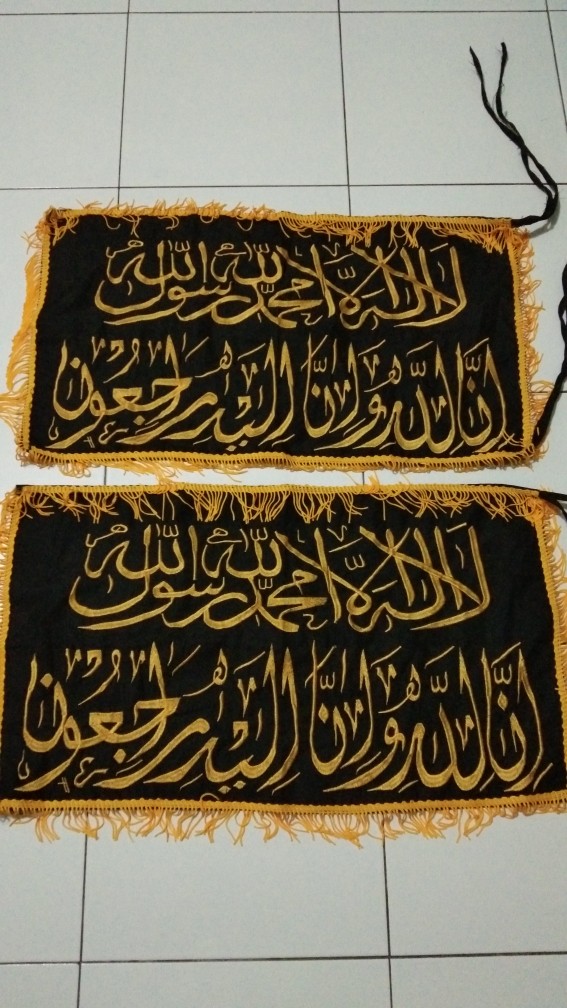 لا اله الا الله محمد رسول الله
انا لله وانا اليه راجعون
لا اله الا الله محمد رسول الله
انا لله وانا اليه راجعون